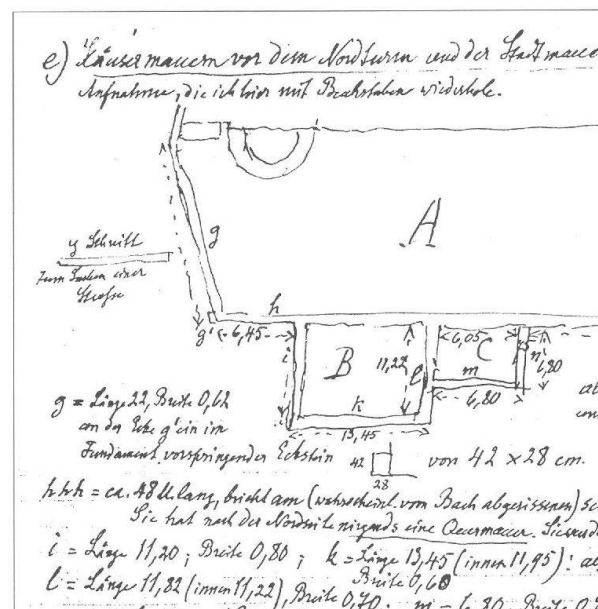 e) Häusermauern vor dem Nordturm und der Stadtmauer
Aufnahme, die ich hier mit Buchstaben wiederhole.
A
g
y Schnitt
zum Suchen einer
Strasse
h
g' 6,45
i
B
11,22
l
k
13,45
6,05
C
m
n
6,80
6,80
g = Länge 22, Breite 0,62
an der Ecke g' ein im
Fundament vorspringender Eckstein
42
28
von 42 × 28 cm.
h h h = ca. 48 M lang, bricht am (wahrscheinl. vom Bach abgerissenen)
Sie hat nach der Nordseite nirgends eine Quermauer.
i = Länge 11,20; Breite 0,80; k = Länge 13,45 (innen 11,95)
Breite 0,60
l = Länge 11,82 (innen 11,22), Breite 0,70. m = 6,80 Breite